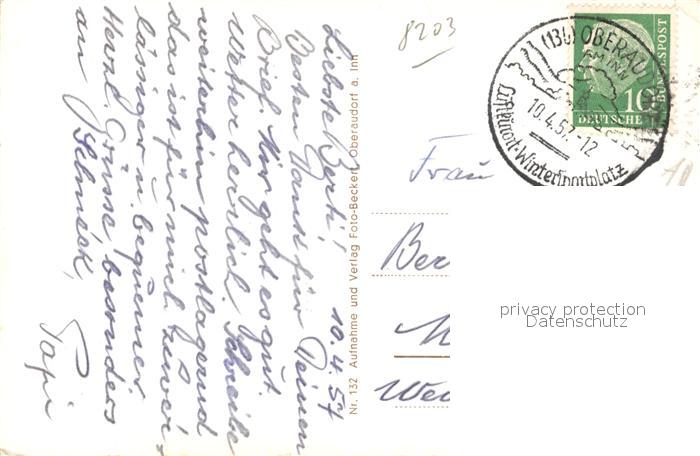 10.4.57
Liebste Berti!
Besten Dank für Deinen
Brief. Mir geht es gut.
Wetter herrlich. Schreibe
weiterhin postlagernd
das ist für mich zuver-
lässiger u. bequemer.
Herzl. Grüsse, besonders
an Schneck,
Papi
Nr. 132 Aufnahme und Verlag Foto-Beckert, Oberaudorf a. Inn
8203
(13b) OBERAUDORF
AM INN
10.4.57-12
Luftkurort-Wintersportplatz
10
DEUTSCHE
BUNDESPOST
Frau
Ber
M
We
privacy protection
Datenschutz